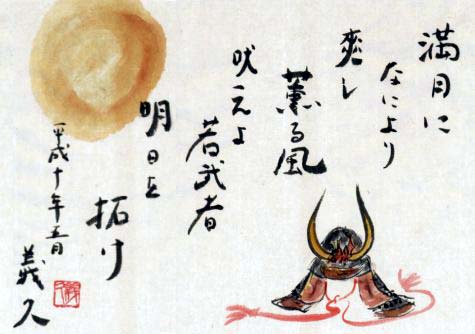 満月に
なにより
爽し
薫る風
吠えよ
若武者
明日を
拓け
平成十年五月
義久